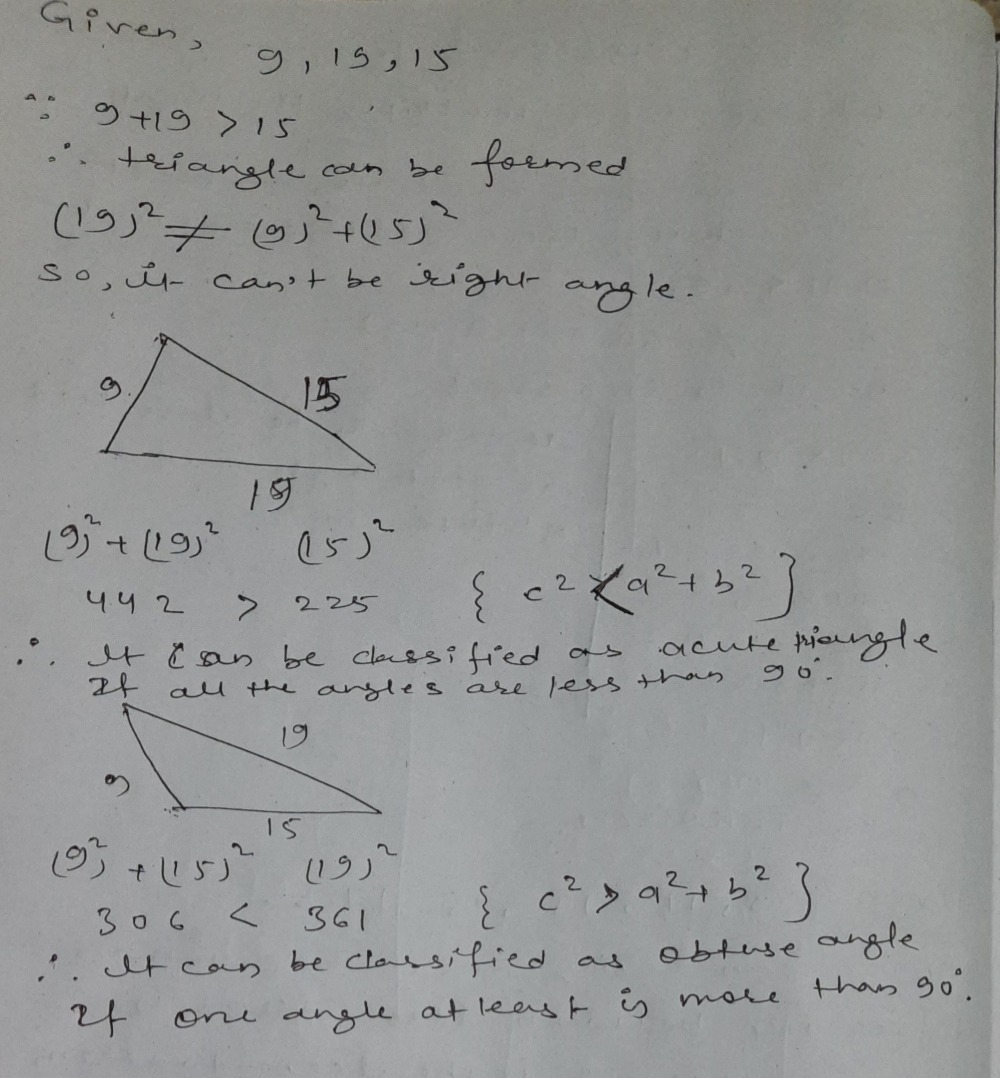 Given,
9, 19, 15
∵ 9+19 > 15
∴ triangle can be formed
(19)² ≠ (9)²+(15)²
so, it can't be right angle.
9
15
19
(9)² + (19)² (15)²
442 > 225 { c² < a² + b² }
∴ It can be classified as acute triangle
If all the angles are less than 90°.
19
9
15
(9)² + (15)² (19)²
306 < 361 { c² > a² + b² }
∴ It can be classified as obtuse angle
If one angle at least is more than 90°.